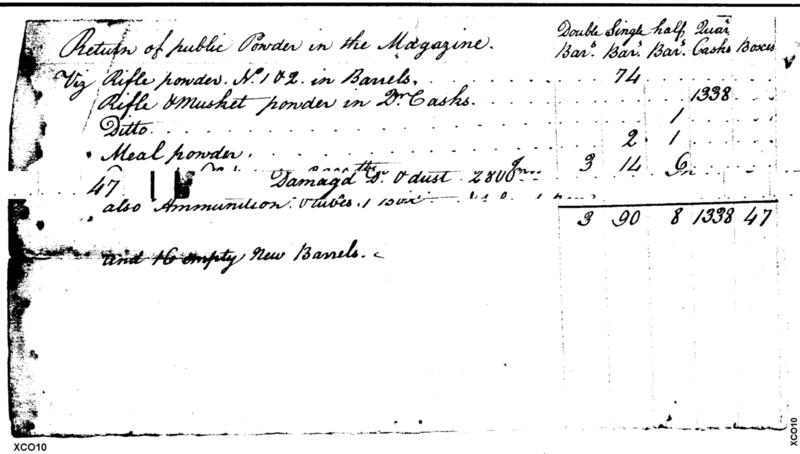 Return of public Powder in the Magazine. Double Barˢ Single Barˢ half Barˢ Quaʳ Casks Boxes
Viz Rifle powder. Nº 1 & 2. in Barrels. 74
Rifle & Musket powder in Qʳ Casks. 1338
Ditto 1
Meal powder. 2 1
47 Damagd & dust 3 14 6
also Ammunition
3 90 8 1338 47
and 16 empty New Barrels.
XCO10
XCO10